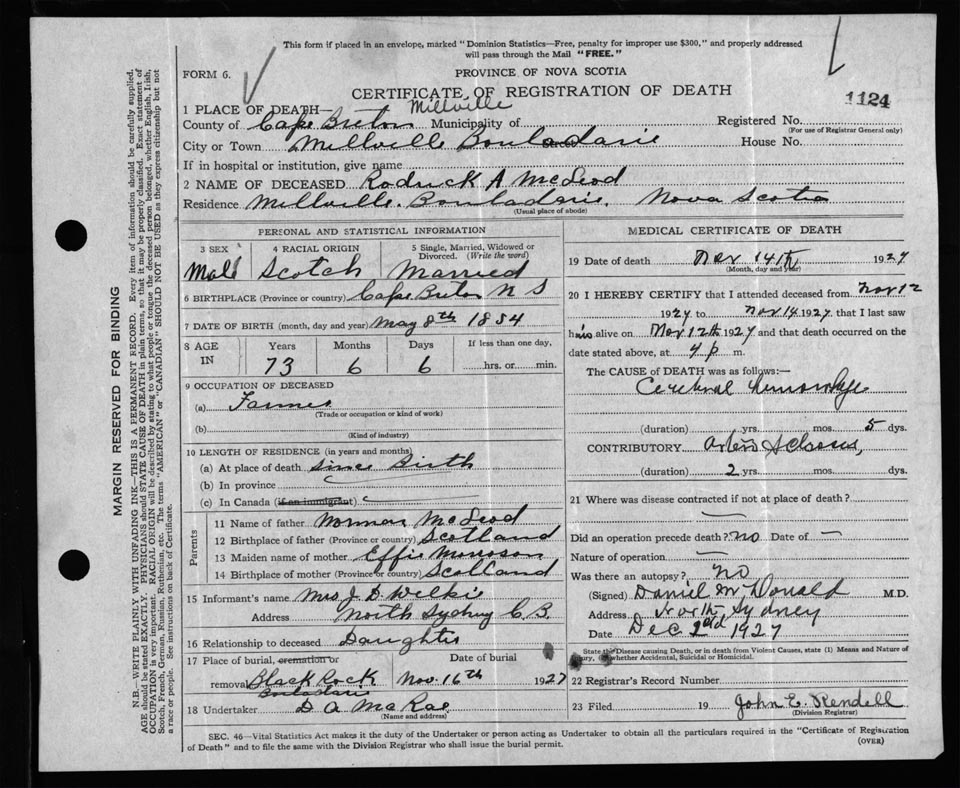 This form if placed in an envelope, marked "Dominion Statistics—Free, penalty for improper use $300," and properly addressed
will pass through the Mail "FREE."
FORM 6.
PROVINCE OF NOVA SCOTIA
CERTIFICATE OF REGISTRATION OF DEATH
1124
1 PLACE OF DEATH— Millville
County of Cape Breton Municipality of
Registered No.
(For use of Registrar General only)
City or Town Millville Bouladarie House No.
If in hospital or institution, give name
2 NAME OF DECEASED Rodrick A McLeod
Residence Millville. Bouladarie, Nova Scotia
(Usual place of abode)
PERSONAL AND STATISTICAL INFORMATION
3 SEX 4 RACIAL ORIGIN 5 Single, Married, Widowed or
Divorced. (Write the word)
Male Scotch Married
6 BIRTHPLACE (Province or country) Cape Breton N S
7 DATE OF BIRTH (month, day and year) May 8th 1854
8 AGE IN Years Months Days If less than one day,
73 6 6 hrs. or min.
9 OCCUPATION OF DECEASED
(a) Farmer
(Trade or occupation or kind of work)
(b)
(Kind of industry)
10 LENGTH OF RESIDENCE (in years and months)
(a) At place of death Since Birth
(b) In province
(c) In Canada (if an immigrant)
Parents
11 Name of father Norman McLeod
12 Birthplace of father (Province or country) Scotland
13 Maiden name of mother Effie Morrison
14 Birthplace of mother (Province or country) Scotland
15 Informant's name Mrs J. D. Wilkie
Address North Sydney C.B.
16 Relationship to deceased Daughter
17 Place of burial, cremation or Date of burial
removal Black Rock Nov. 16th 1927
Bouladarie
18 Undertaker D A McRae
(Name and address)
MEDICAL CERTIFICATE OF DEATH
19 Date of death Nov 14th 1927
(Month, day and year)
20 I HEREBY CERTIFY that I attended deceased from Nov 12
1927 to Nov 14 1927 that I last saw
him alive on Nov 12th 1927 and that death occurred on
date stated above, at 4 p m.
The CAUSE OF DEATH was as follows:—
Cerebral Hemorrhage
(duration) yrs. mos. 5 dys.
CONTRIBUTORY Arterio Sclerosis,
(duration) 2 yrs. mos. dys.
21 Where was disease contracted if not at place of death?
—
Did an operation precede death? no Date of —
Nature of operation —
Was there an autopsy? no
(Signed) Daniel McDonald M.D.
Address North Sydney
Date Dec. 2nd 1927
State the Disease causing Death, or in death from Violent Causes, state (1) Means and Nature of
Injury, (2) whether Accidental, Suicidal or Homicidal.
22 Registrar's Record Number
23 Filed 19 John E. Rendell
(Division Registrar)
SEC. 46—Vital Statistics Act makes it the duty of the Undertaker or person acting as Undertaker to obtain all the particulars required in the "Certificate of Registration
of Death" and to file the same with the Division Registrar who shall issue the burial permit.
(OVER)
MARGIN RESERVED FOR BINDING
N.B.—WRITE PLAINLY WITH UNFADING INK—THIS IS A PERMANENT RECORD. Every item of information should be carefully supplied.
AGE should be stated EXACTLY. PHYSICIANS should STATE CAUSE OF DEATH in plain terms, so that it may be properly classified. Exact statement of
OCCUPATION is very important. RACIAL ORIGIN will be described by stating to what people or tongue the deceased person belonged, whether English, Irish,
Scotch, French, German, Russian, Ruthenian, etc. The terms "AMERICAN" or "CANADIAN" SHOULD NOT BE USED as they express citizenship but not
a race or people. See instructions on back of Certificate.